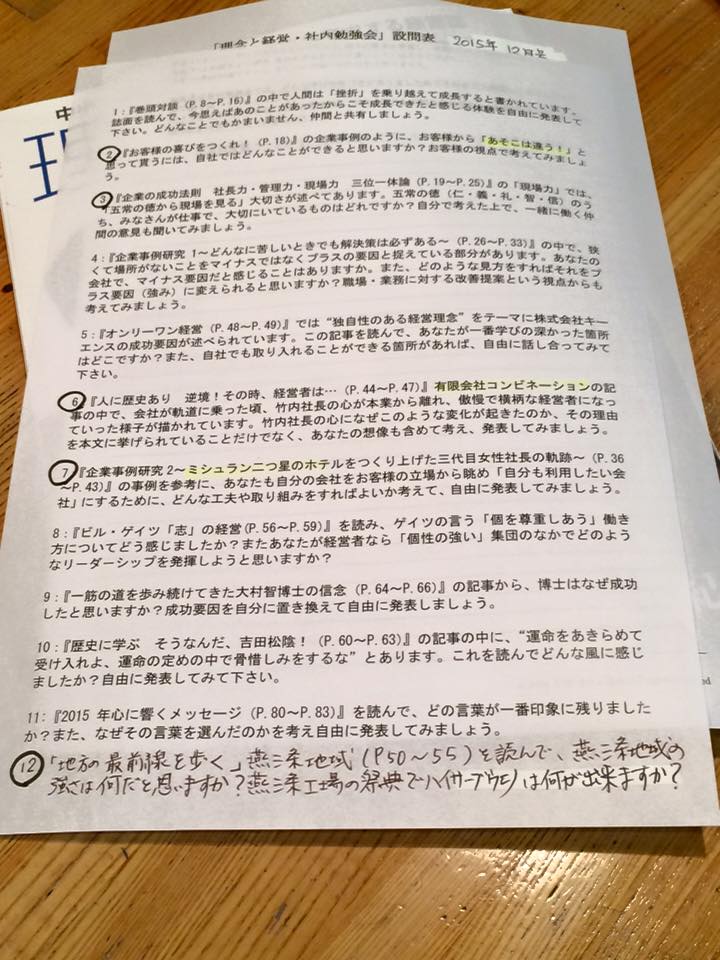 「理念と経営・社内勉強会」設問表 2015年 12月号
中
理
1：『巻頭対談（P.8～P.16）』の中で人間は「挫折」を乗り越えて成長すると書かれています。
誌面を読んで、今思えばあのことがあったからこそ成長できたと感じる体験を自由に発表して
下さい。どんなことでもかまいません、仲間と共有しましょう。
2：『お客様の喜びをつくれ！（P.18）』の企業事例のように、お客様から「あそこは違う！」と
思って貰うには、自社ではどんなことができると思いますか？お客様の視点で考えてみましょ
う。
3：『企業の成功法則 社長力・管理力・現場力 三位一体論（P.19～P.25）』の「現場力」では、
「五常の徳から現場を見る」大切さが述べてあります。五常の徳（仁・義・礼・智・信）のう
ち、みなさんが仕事で、大切にいているものはどれですか？自分で考えた上で、一緒に働く仲
間の意見も聞いてみましょう。
4：『企業事例研究 1～どんなに苦しいときでも解決策は必ずある～（P.26～P.33）』の中で、狭
くて場所がないことをマイナスではなくプラスの要因と捉えている部分があります。あなたの
会社で、マイナス要因だと感じることはありますか。また、どのような見方をすればそれをプ
ラス要因（強み）に変えられると思いますか？職場・業務に対する改善提案という視点からも
考えてみましょう。
5：『オンリーワン経営（P.48～P.49）』では“独自性のある経営理念”をテーマに株式会社キー
エンスの成功要因が述べられています。この記事を読んで、あなたが一番学びの深かった箇所
はどこですか？また、自社でも取り入れることができる箇所があれば、自由に話し合ってみて
下さい。
6：『人に歴史あり 逆境！その時、経営者は…（P.44～P.47）』有限会社コンビネーションの記
事の中で、会社が軌道に乗った頃、竹内社長の心が本業から離れ、傲慢で横柄な経営者になっ
ていった様子が描かれています。竹内社長の心になぜこのような変化が起きたのか、その理由
を本文に挙げられていることだけでなく、あなたの想像も含めて考え、発表してみましょう。
7：『企業事例研究 2～ミシュラン二つ星のホテルをつくり上げた三代目女性社長の軌跡～（P.36
～P.43）』の事例を参考に、あなたも自分の会社をお客様の立場から眺め「自分も利用したい会
社」にするために、どんな工夫や取り組みをすればよいか考えて、自由に発表してみましょう。
8：『ビル・ゲイツ「志」の経営（P.56～P.59）』を読み、ゲイツの言う「個を尊重しあう」働き
方についてどう感じましたか？またあなたが経営者なら「個性の強い」集団のなかでどのよう
なリーダーシップを発揮しようと思いますか？
9：『一筋の道を歩み続けてきた大村智博士の信念（P.64～P.66）』の記事から、博士はなぜ成功
したと思いますか？成功要因を自分に置き換えて自由に発表しましょう。
10：『歴史に学ぶ そうなんだ、吉田松陰！（P.60～P.63）』の記事の中に、“運命をあきらめて
受け入れよ、運命の定めの中で骨惜しみをするな”とあります。これを読んでどんな風に感じ
ましたか？自由に発表してみて下さい。
11：『2015 年心に響くメッセージ（P.80～P.83）』を読んで、どの言葉が一番印象に残りました
か？また、なぜその言葉を選んだのかを考え自由に発表してみましょう。
12 「地方の最前線を歩く」燕三条地域（P50～55）を読んで、燕三条地域の
強さは何だと思いますか？燕三条工場の祭典でハイサーブウエノは何が出来ますか？
ed